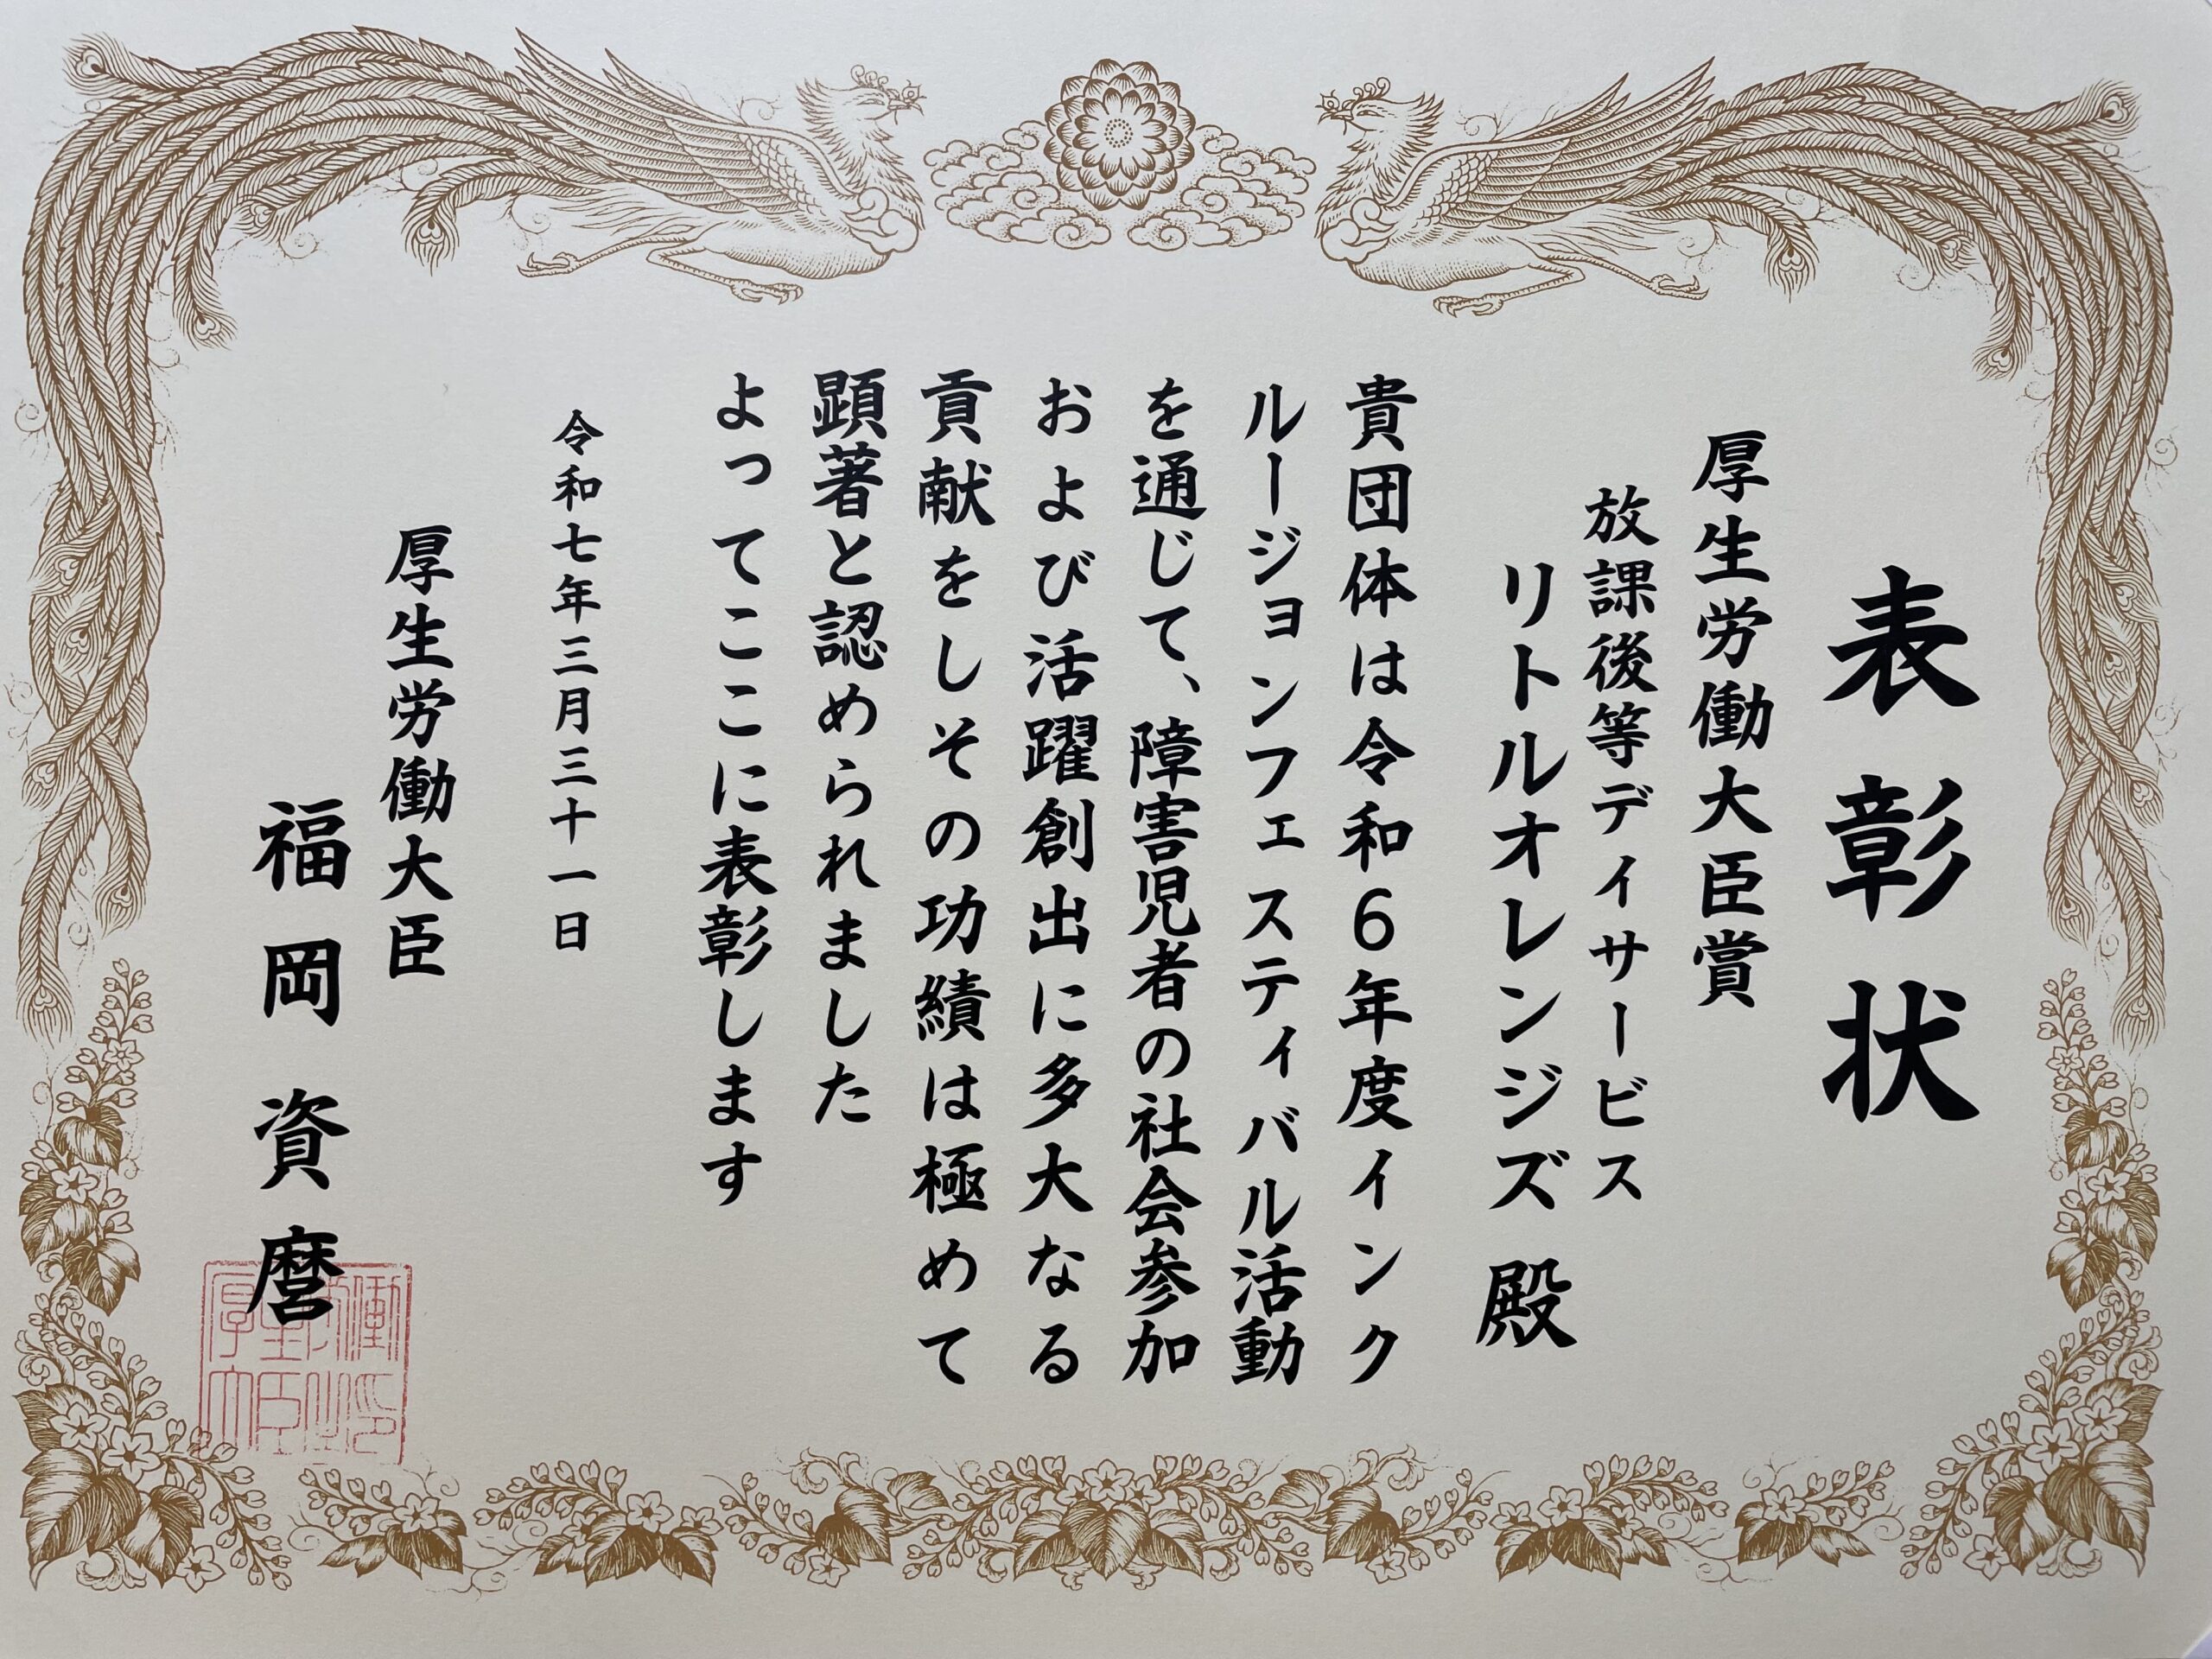 表彰状
厚生労働大臣賞
放課後等デイサービス
リトルオレンジズ 殿
貴団体は令和6年度インク
ルージョンフェスティバル活動
を通じて、障害児者の社会参加
および活躍創出に多大なる
貢献をしその功績は極めて
顕著と認められました
よってここに表彰します
令和七年三月三十一日
厚生労働大臣
福岡資麿
厚生労働大臣之印